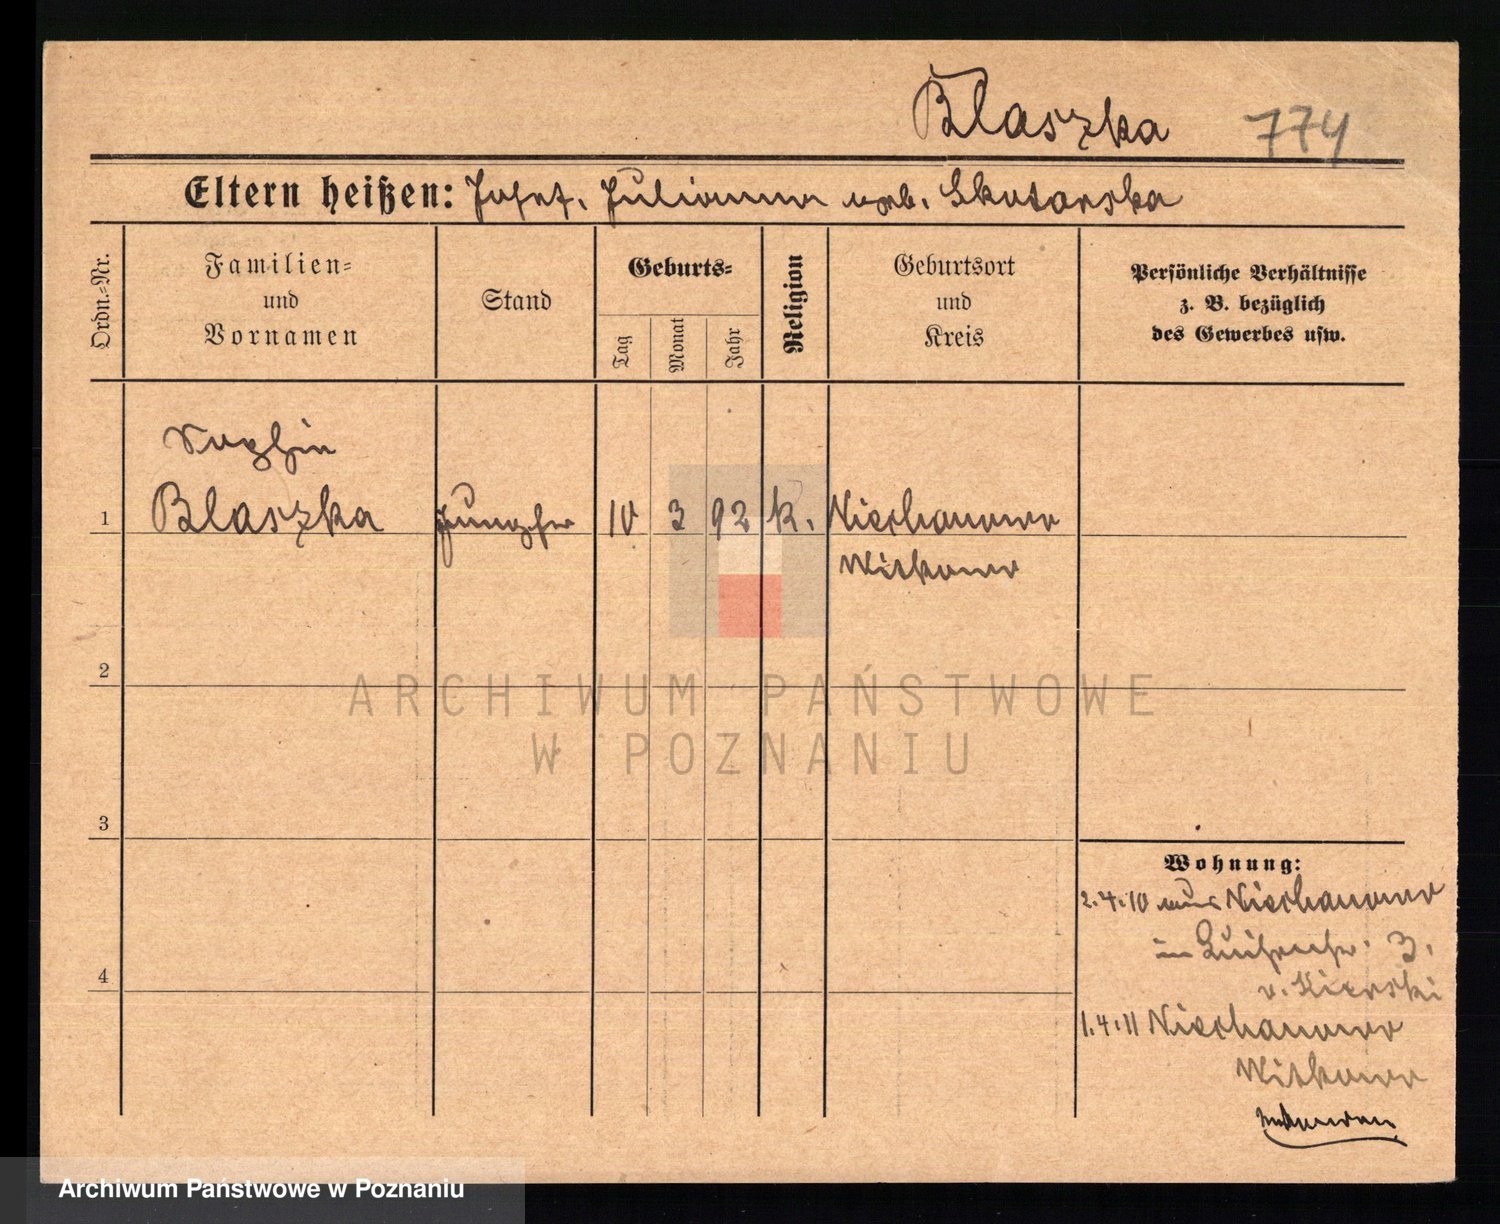 Blaszka 774
Eltern heißen: Josef, Julianna geb. Skotarska
Ordn.-Nr.
Familien-
und
Vornamen
Stand
Geburts-
Tag
Monat
Jahr
Religion
Geburtsort
und
Kreis
Persönliche Verhältnisse
z. B. bezüglich
des Gewerbes usw.
Sophie
1 Blaszka Jungfr 10 3 92 k. Niechanowo
Witkowo
2
3
4
Wohnung:
2.4.10 aus Niechanowo
3.
1.4.11 Niechanowo
Witkowo
ARCHIWUM PAŃSTWOWE
W POZNANIU
Archiwum Państwowe w Poznaniu